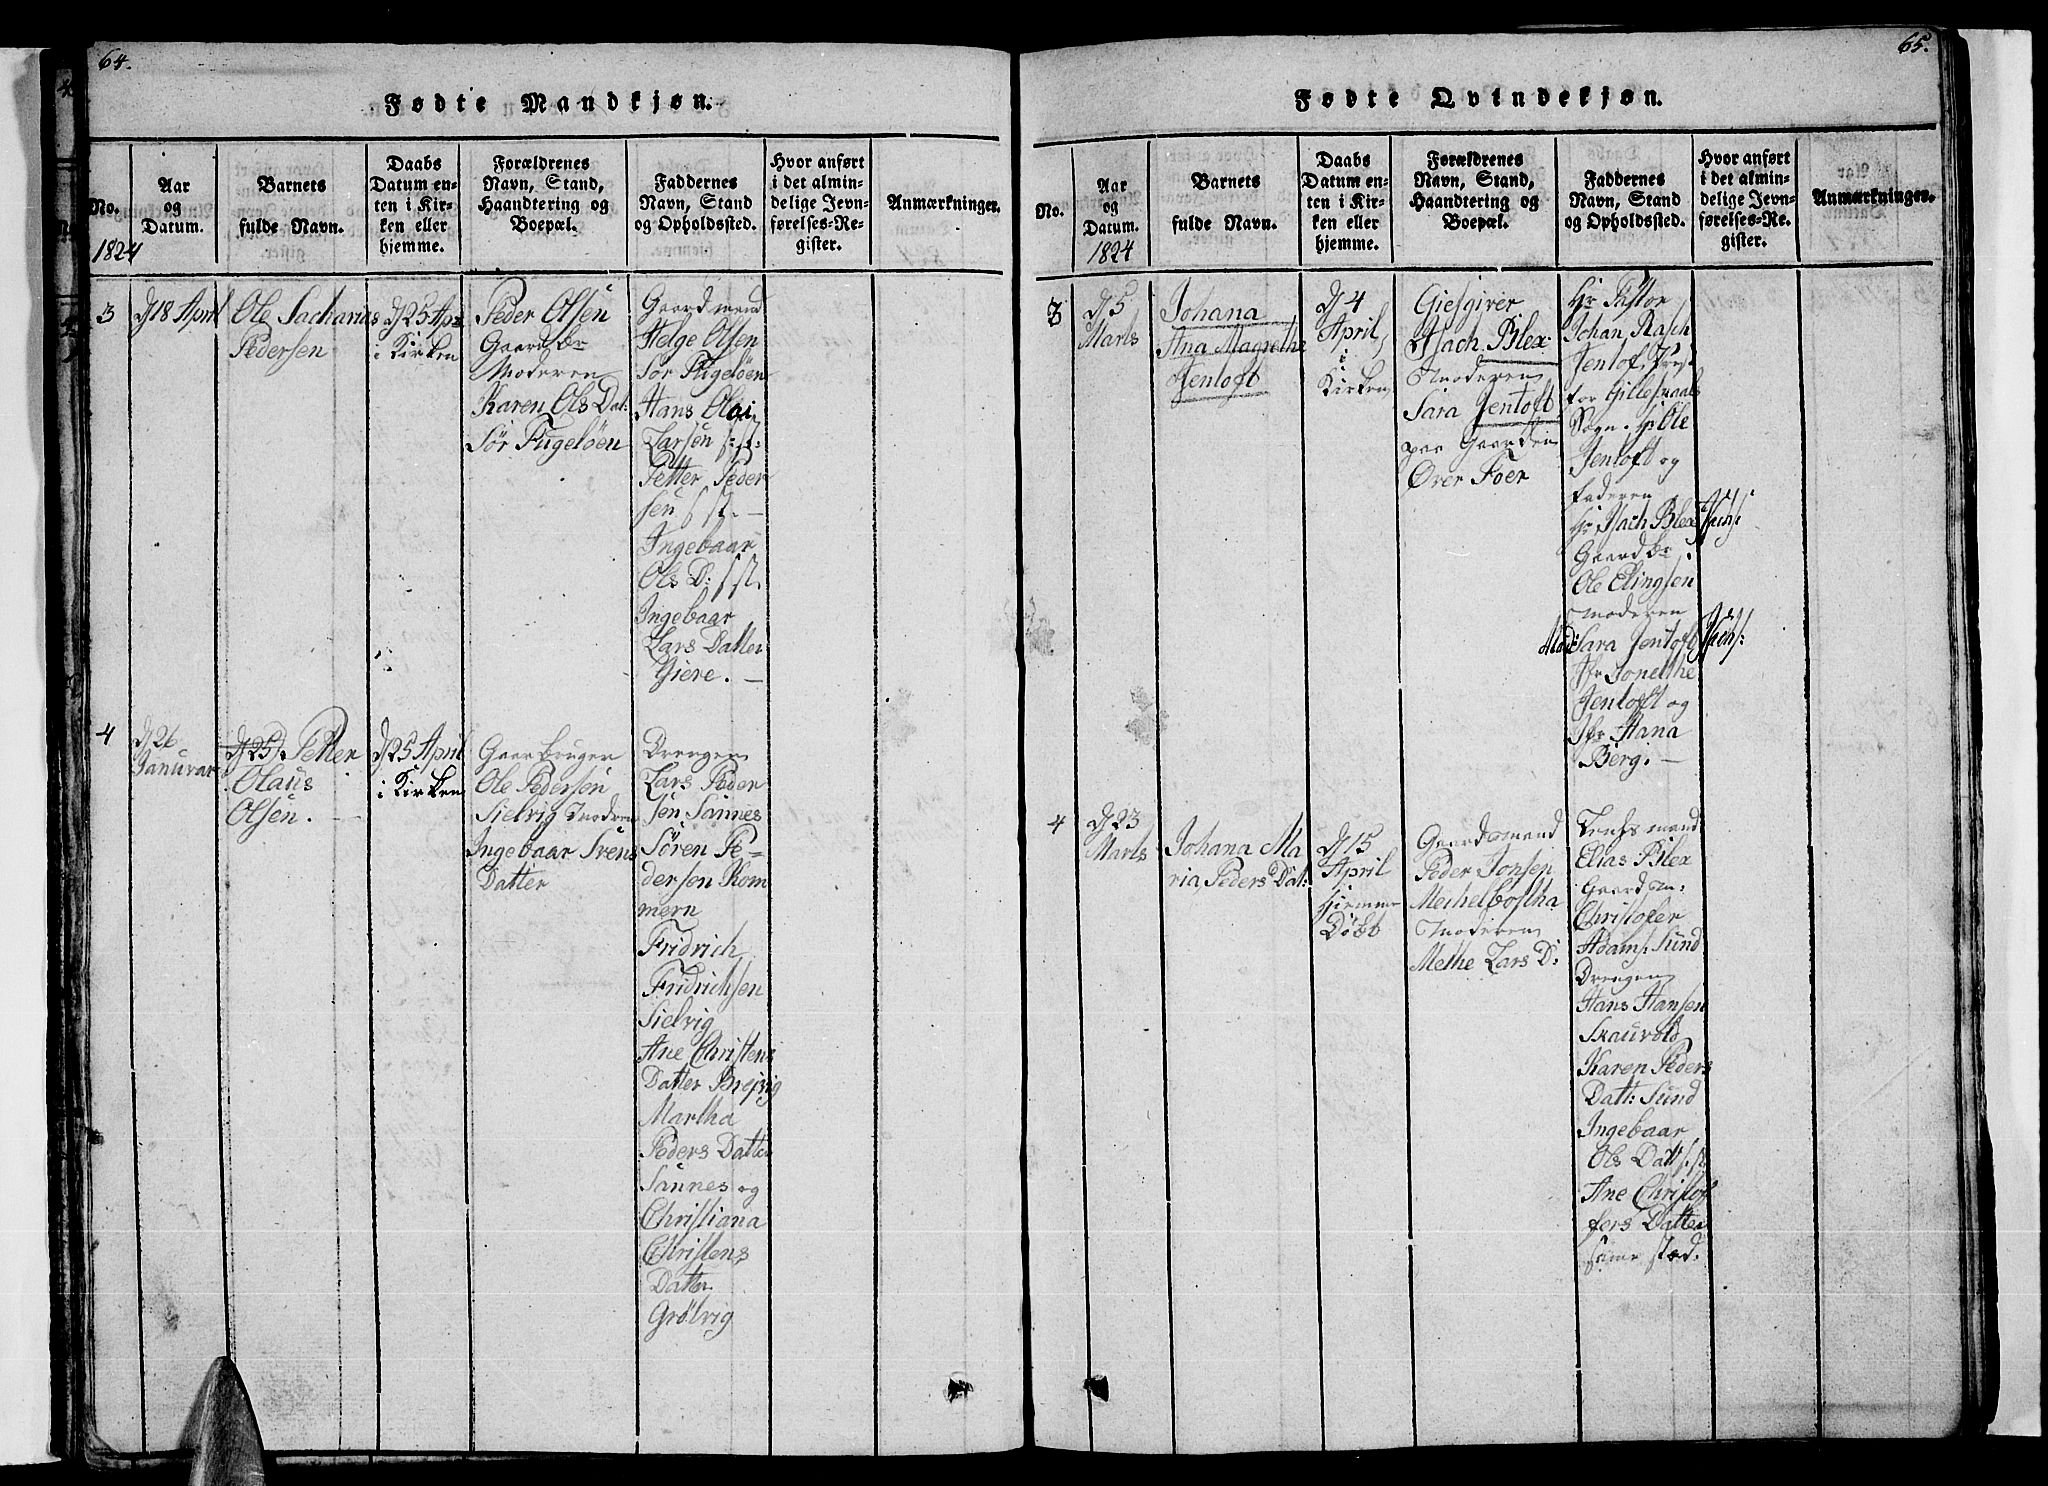 64.
Fødte Mandkjøn.
No.
Aar
og
Datum.
Barnets
fulde Navn.
Daabs
Datum en-
ten i Kir-
ken eller
hjemme.
Forældrenes
Navn, Stand,
Haandtering og
Boepæl.
Faddernes
Navn, Stand
og Opholdssted.
Hvor anført
i det almin-
delige Jevn-
førelses-Re-
gister.
Anmærkninger.
1824
3
d 18 April
Ole Sacharias
Pedersen
d 25 Apr
i Kirken
Peder Olsen
Gaard Br
Moderen
Karen Ols Dat:
Sör Fugelöen
Gaardmend
Helge Olsen
Sör Fugelöen
Hans Olai
Larsen s: st:
Petter Peder
sen s st. —
Ingebaar
Ols D: s st.
Ingebaar
Lars Datter
Giere. —
4
d 26
Januvar
d 25 Petter
Olaus
Olsen. —
d 25 April
i Kirken
Gaarbruger
Ole Pedersen
Sielvig Modren
Ingebaar Svens
Datter
Drengen
Lars Peder
sen Sannes
Sören Pe-
dersen Kom
mern
Fridrich
Fridrichsen
Sielvig
Ane Christens
Datter Brejvig
Martha
Peders Datter
Sannes og
Christiana
Christens
Datter
Grölvig
65.
Fødte Qvindekjøn.
No.
Aar
og
Datum.
1824
Barnets
fulde Navn.
Daabs
Datum en-
ten i Kir-
ken eller
hjemme.
Forældrenes
Navn, Stand,
Haandtering og
Boepæl.
Faddernes
Navn, Stand
og Opholdssted.
Hvor anført
i det almin-
delige Jevn-
førelses-Re-
gister.
Anmærkninger.
3
d 5
Marts
Johana
Ana Magrethe
Jentoft
d 4
April
i
Kirken
Giesgiver
Isach Blex
Moderen
Sara Jentoft
paa Gaarden
Över Foer
Hr Pastor
Johan Rasch
Jentoft, Præst
for Gillesvaals
Sogn. Hr Ole
Jentoft og
Faderen
Hr Isach Blex
Gaard Br
Ole Elingsen
Moderen
Mad: Sara Jentoft
Jfr Jonethe
Jentoft og
Jfr Hana
Berg. —
4
d 23
Marts
Johana Ma
ria Peders Dat:
d 15
April
Hiemme
Döbt
Gaardsmand
Peder Jonsen
Mechelbostha
Moderen
Methe Lars D:
Lensmand
Elias Blex
Gaard M:
Christofer
Adams: Sund
Drengen
Hans Hansen
Skauvold
Karen Peders
Datt: Sund
Ingebaar
Ols Datt s: st
Ane Christof
fers Datter
samme sted.